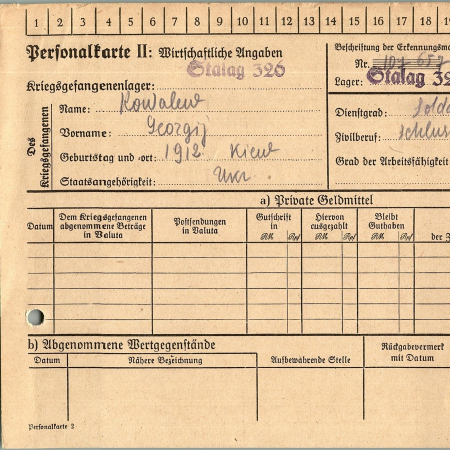 1 2 3 4 5 6 7 8 9 10 11 12 13 14 15 16 17 18 19
Personalkarte II: Wirtschaftliche Angaben
Stalag 326
Kriegsgefangenenlager:
Des Kriegsgefangenen
Name: Kowalew
Vorname: Georgij
Geburtstag und -ort: 1912 Kiew
Staatsangehörigkeit: Ukr.
Beschriftung der Erkennungsma
Nr. 107 657
Lager: Stalag 32
Dienstgrad: Solda
Zivilberuf: Schlus
Grad der Arbeitsfähigkeit
a) Private Geldmittel
Datum
Dem Kriegsgefangenen abgenommene Beträge in Valuta
Postsendungen in Valuta
Gutschrift in
RM Rpf
Hiervon ausgezahlt
RM Rpf
Bleibt Guthaben
RM Rpf
der Z
b) Abgenommene Wertgegenstände
Datum
Nähere Bezeichnung
Aufbewahrende Stelle
Rückgabevermerk mit Datum
Personalkarte 2